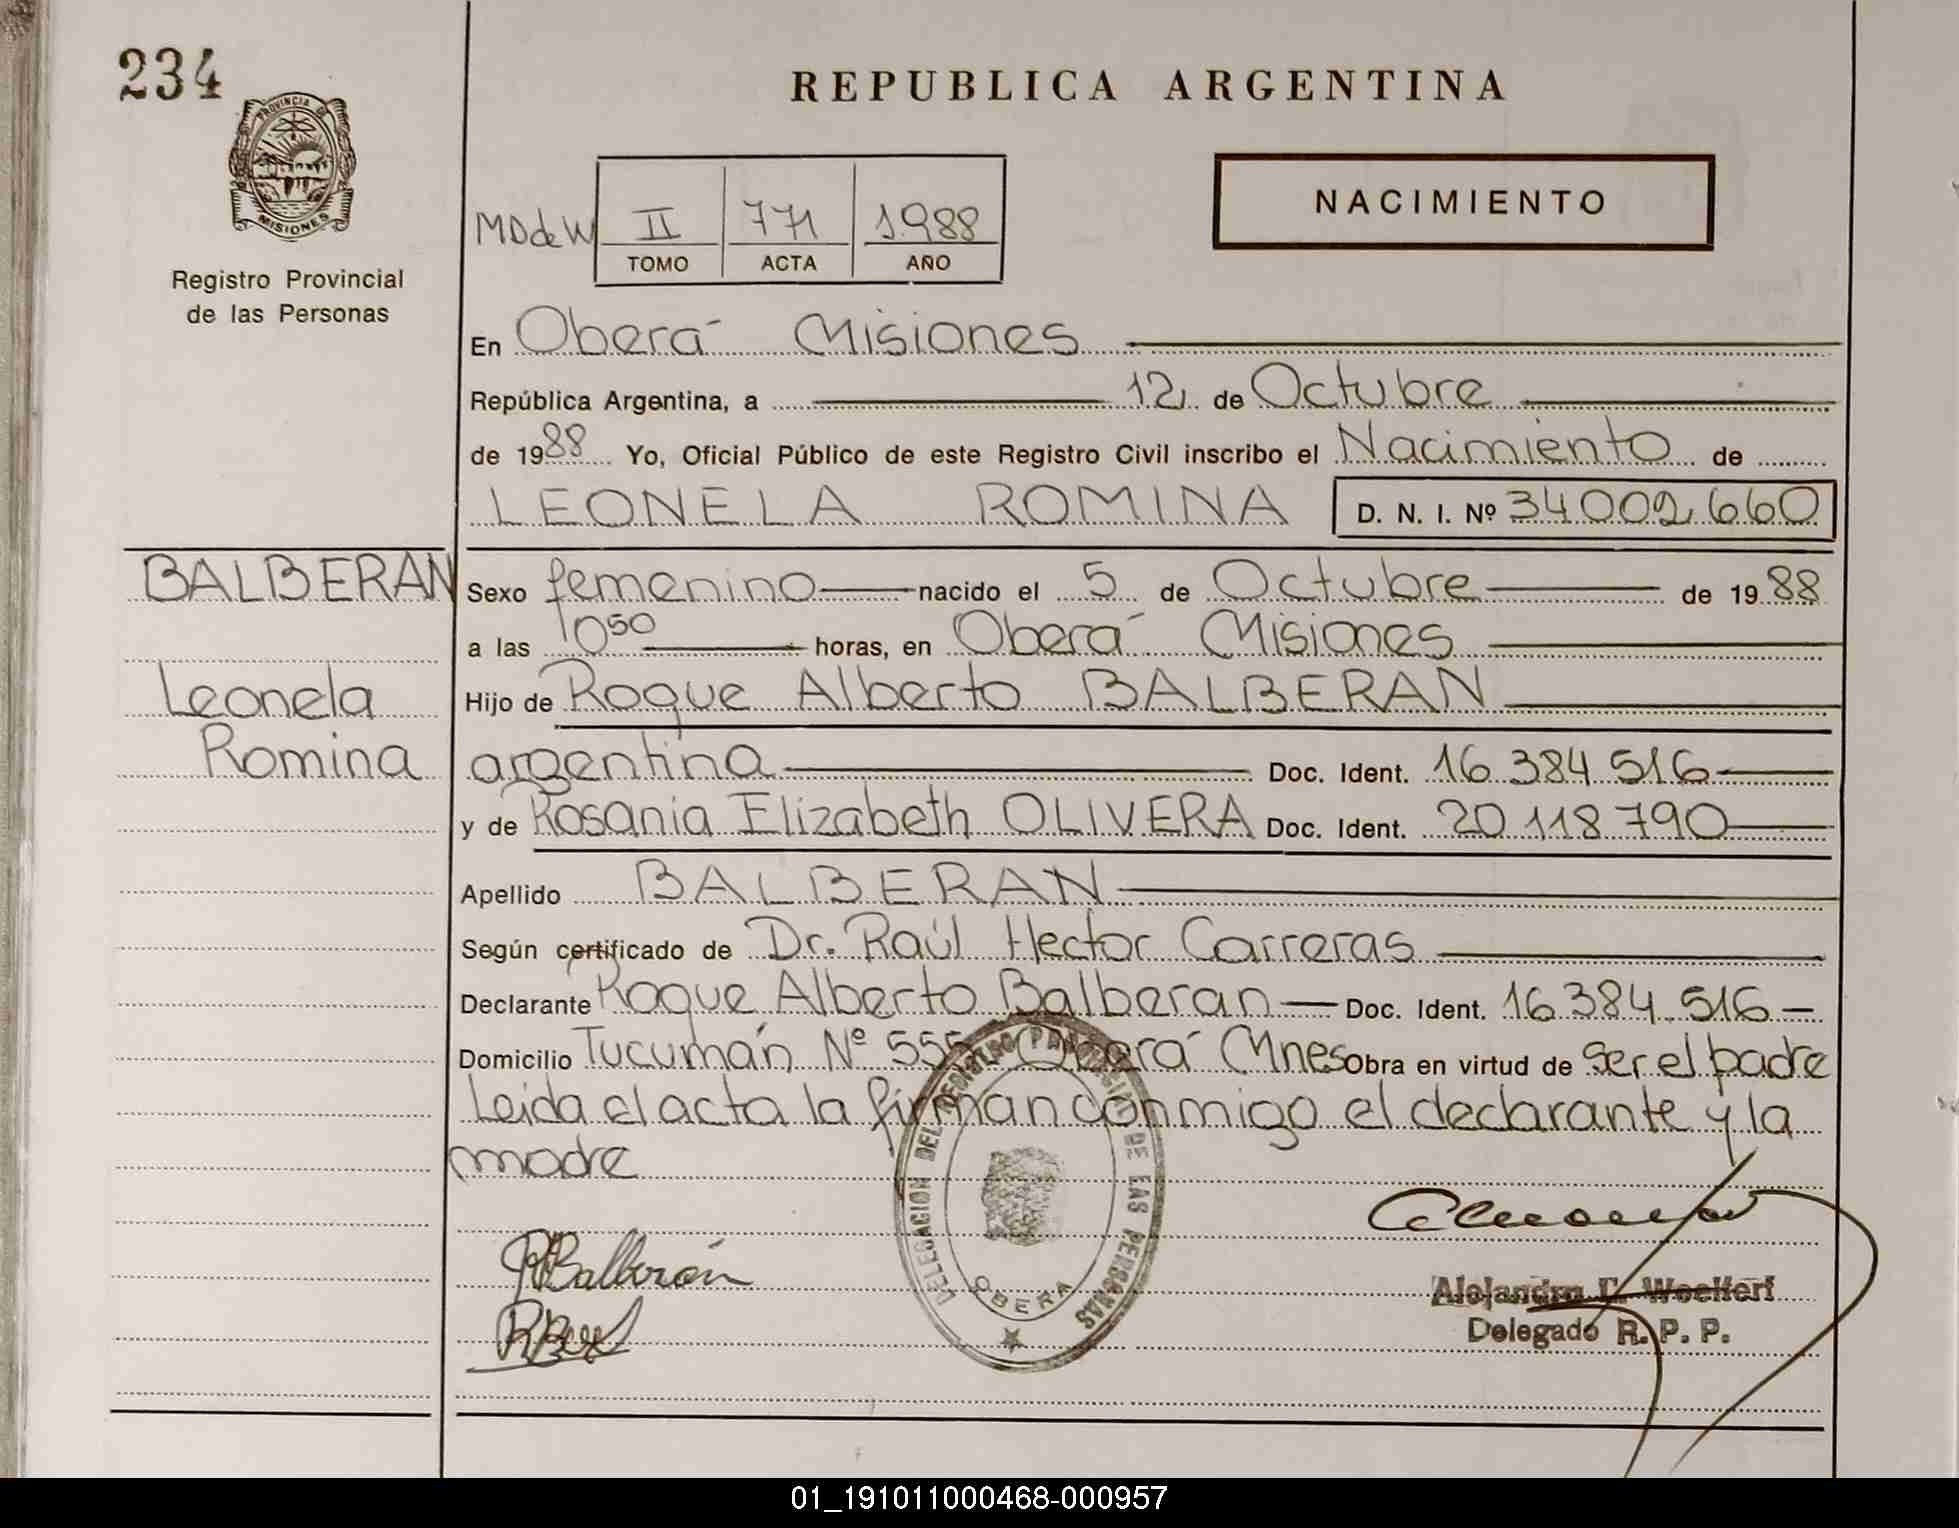 234
REPUBLICA ARGENTINA
PROVINCIA DE
MISIONES
NACIMIENTO
MDdeW II 771 1.988
TOMO ACTA AÑO
Registro Provincial
de las Personas
En Oberá Misiones
República Argentina, a 12 de Octubre
de 1988 Yo, Oficial Público de este Registro Civil inscribo el Nacimiento de
LEONELA ROMINA D. N. I. Nº 34002660
BALBERAN
Sexo femenino nacido el 5 de Octubre de 1988
a las 10⁵⁰ horas, en Oberá Misiones
Leonela
Hijo de Roque Alberto BALBERAN
Romina
argentina Doc. Ident. 16.384.516
y de Rosania Elizabeth OLIVERA Doc. Ident. 20.118.790
Apellido BALBERAN
Según certificado de Dr. Raúl Hector Carreras
Declarante Roque Alberto Balberan Doc. Ident. 16.384.516
Domicilio Tucumán Nº 555 Oberá Mnes Obra en virtud de Ser el padre
Leida el acta la firman conmigo el declarante y la
madre
DELEGACION DEL REGISTRO PROVINCIAL DE LAS PERSONAS
OBERA
RABalberán
Alejandro E. Woelfert
Delegado R. P. P.
01_191011000468-000957